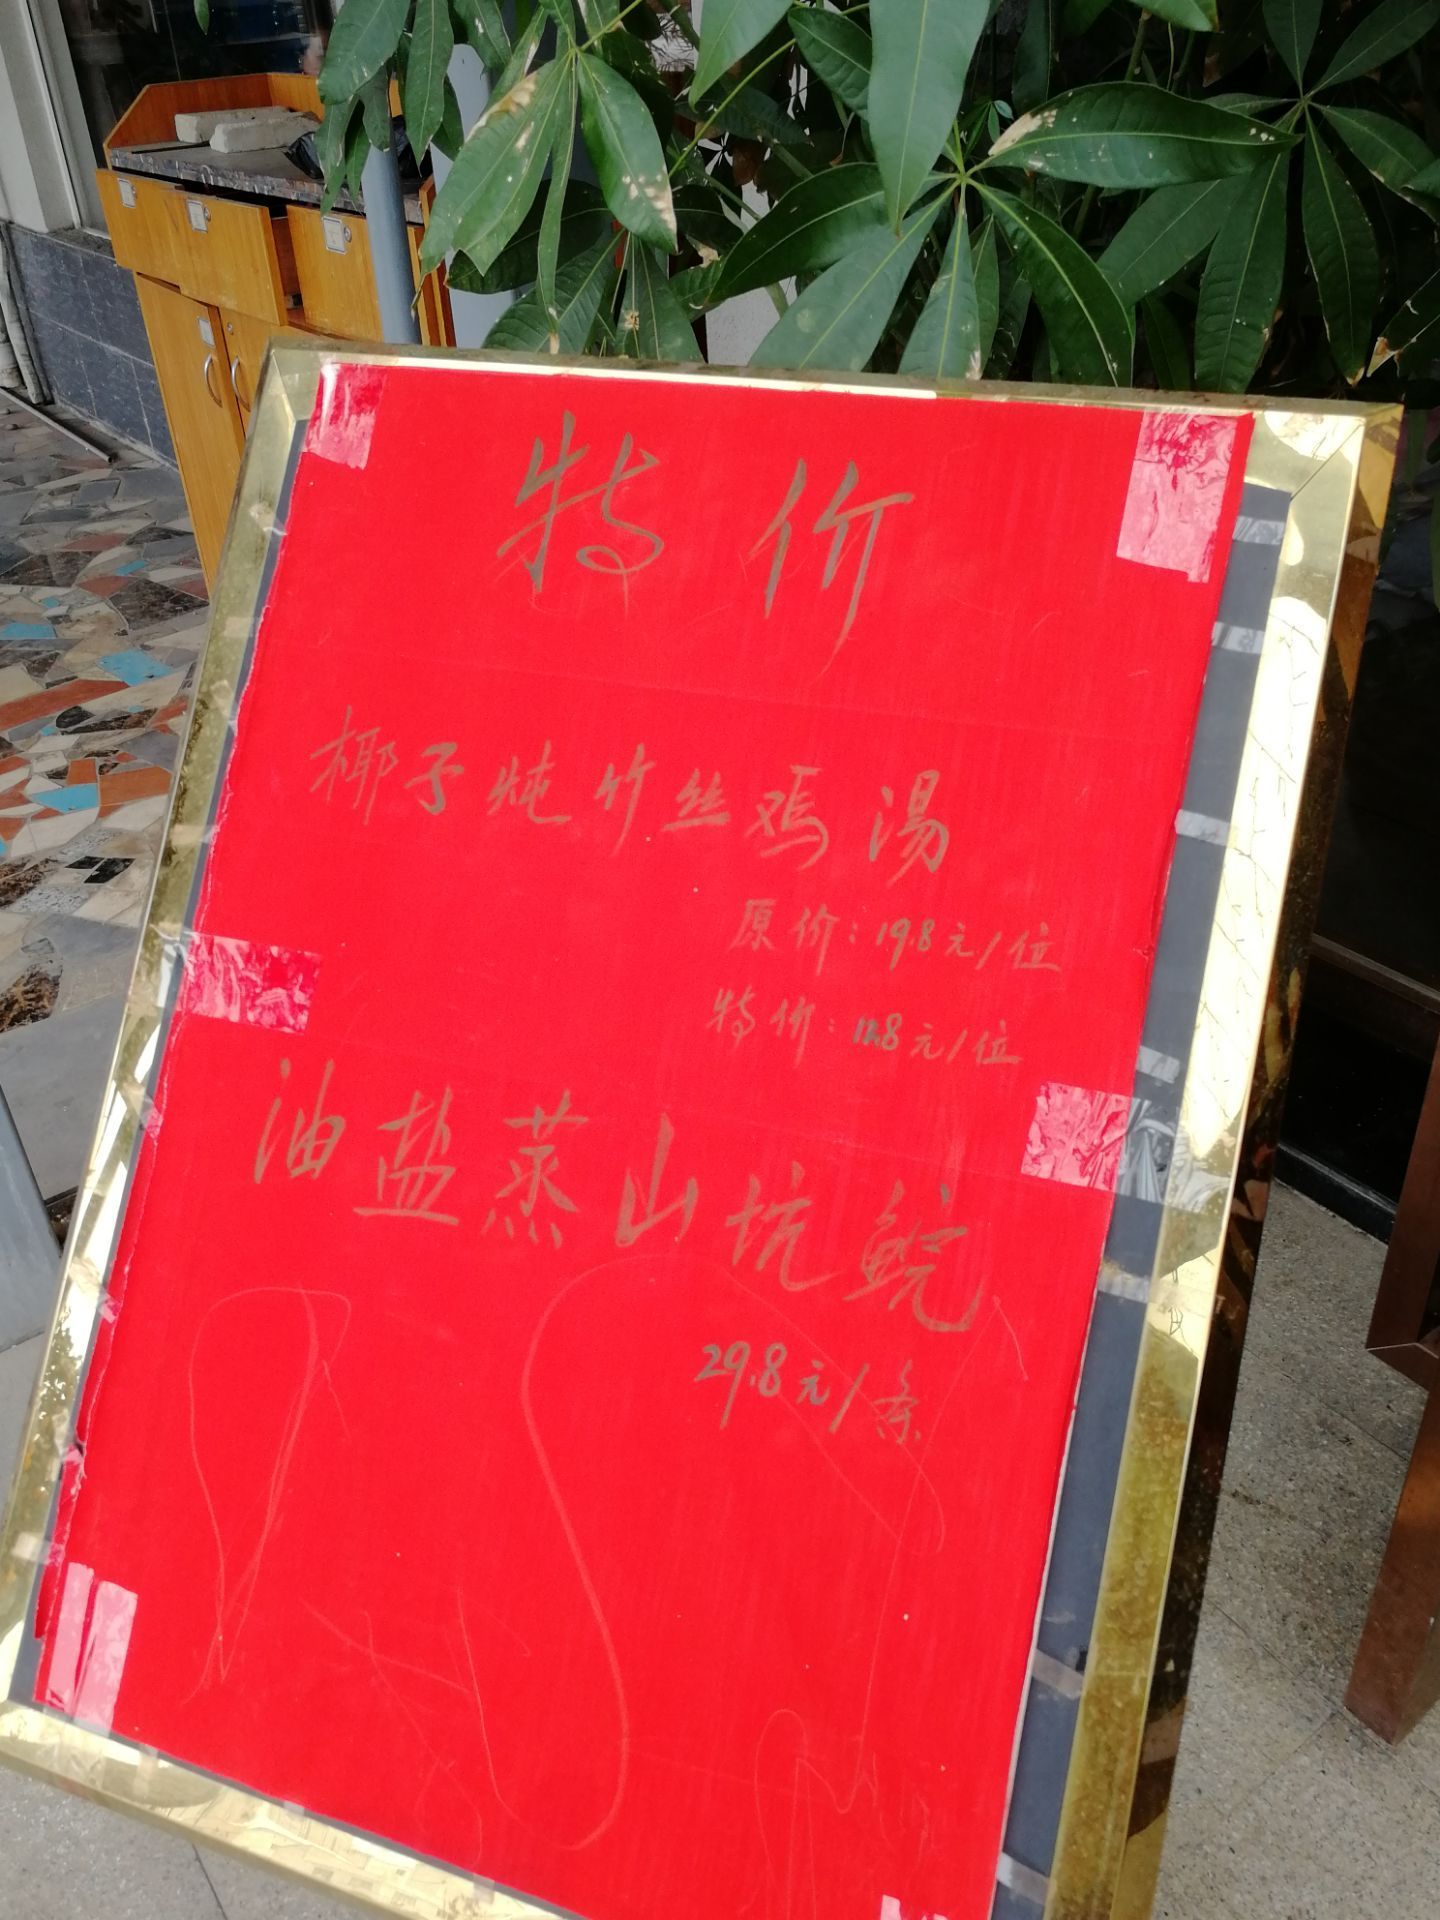 特价
椰子炖竹丝鸡汤
原价：19.8元/位
特价：12.8元/位
油盐蒸山坑鲩
29.8元/条